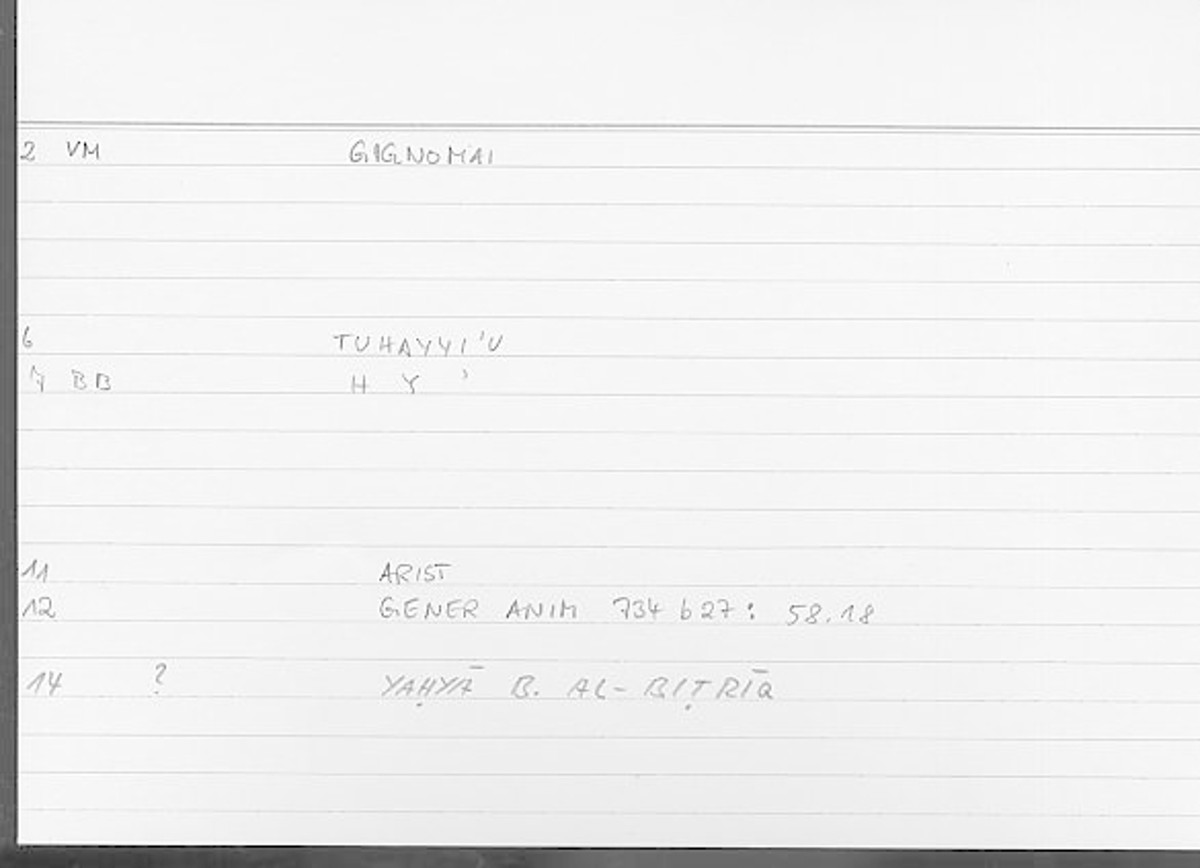 2 VM GIGNOMAI
6 TUHAYYI'U
7 BB H Y '
11 ARIST
12 GENER ANIM 734 b27: 58.18
14 ? YAḤYĀ B. AL-BIṬRĪQ